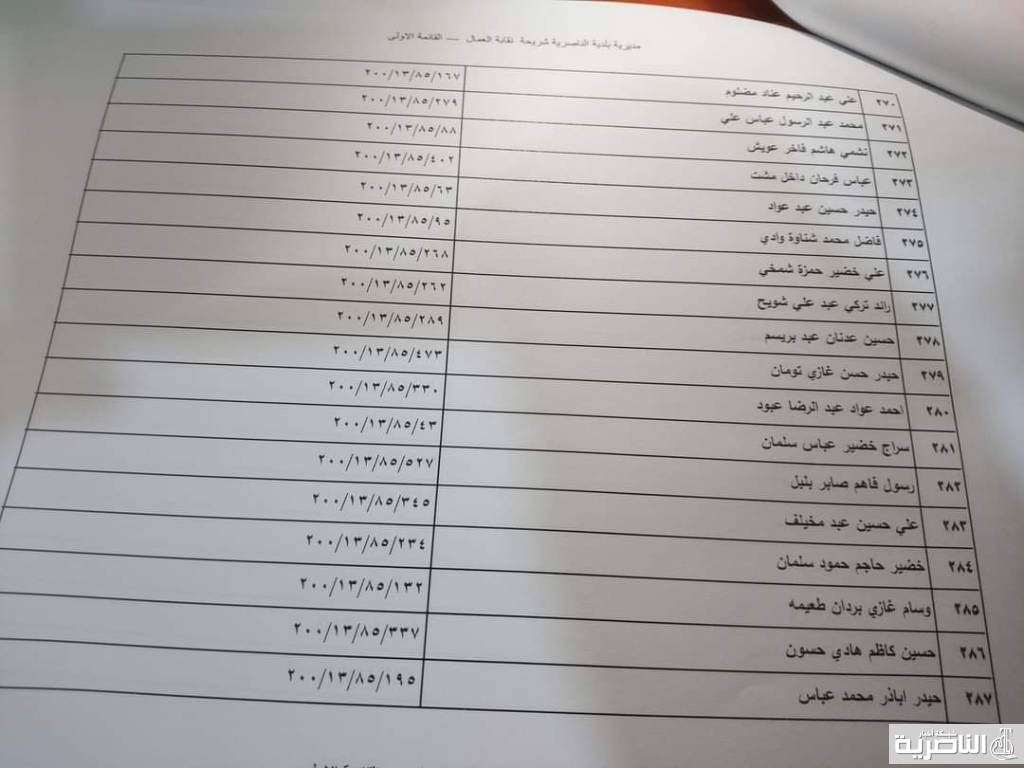 مديرية بلدية الناصرية شريحة نقابة العمال — القائمة الاولى
٢٧٠ علي عبد الرحيم عناد مضلوم ٢٠٠/١٣/٨٥/١٦٧
٢٧١ محمد عبد الرسول عباس علي ٢٠٠/١٣/٨٥/٢٧٩
٢٧٢ نشمي هاشم فاخر عويش ٢٠٠/١٣/٨٥/٨٨
٢٧٣ عباس فرحان داخل مشت ٢٠٠/١٣/٨٥/٤٠٢
٢٧٤ حيدر حسين عبد عواد ٢٠٠/١٣/٨٥/٦٣
٢٧٥ فاضل محمد شناوة وادي ٢٠٠/١٣/٨٥/٩٥
٢٧٦ علي خضير حمزة شمخي ٢٠٠/١٣/٨٥/٢٦٨
٢٧٧ رائد تركي عبد علي شويح ٢٠٠/١٣/٨٥/٢٦٢
٢٧٨ حسين عدنان عبد بريسم ٢٠٠/١٣/٨٥/٢٨٩
٢٧٩ حيدر حسن غازي تومان ٢٠٠/١٣/٨٥/٤٧٣
٢٨٠ احمد عواد عبد الرضا عبود ٢٠٠/١٣/٨٥/٣٣٠
٢٨١ سراج خضير عباس سلمان ٢٠٠/١٣/٨٥/٤٣
٢٨٢ رسول فاهم صابر بلبل ٢٠٠/١٣/٨٥/٥٢٧
٢٨٣ علي حسين عبد مخيلف ٢٠٠/١٣/٨٥/٣٤٥
٢٨٤ خضير حاجم حمود سلمان ٢٠٠/١٣/٨٥/٢٣٤
٢٨٥ وسام غازي بردان طعيمه ٢٠٠/١٣/٨٥/١٣٢
٢٨٦ حسين كاظم هادي حسون ٢٠٠/١٣/٨٥/٣٣٧
٢٨٧ حيدر اباذر محمد عباس ٢٠٠/١٣/٨٥/١٩٥
شبكة أخبار
الناصرية